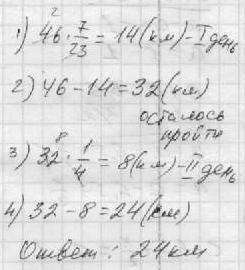 1) 46 · 7/23 = 14 (км) – I день
2) 46 – 14 = 32 (км)
осталось
пройти
3) 32 · 1/4 = 8 (км) – II день
4) 32 – 8 = 24 (км)
Ответ: 24 км